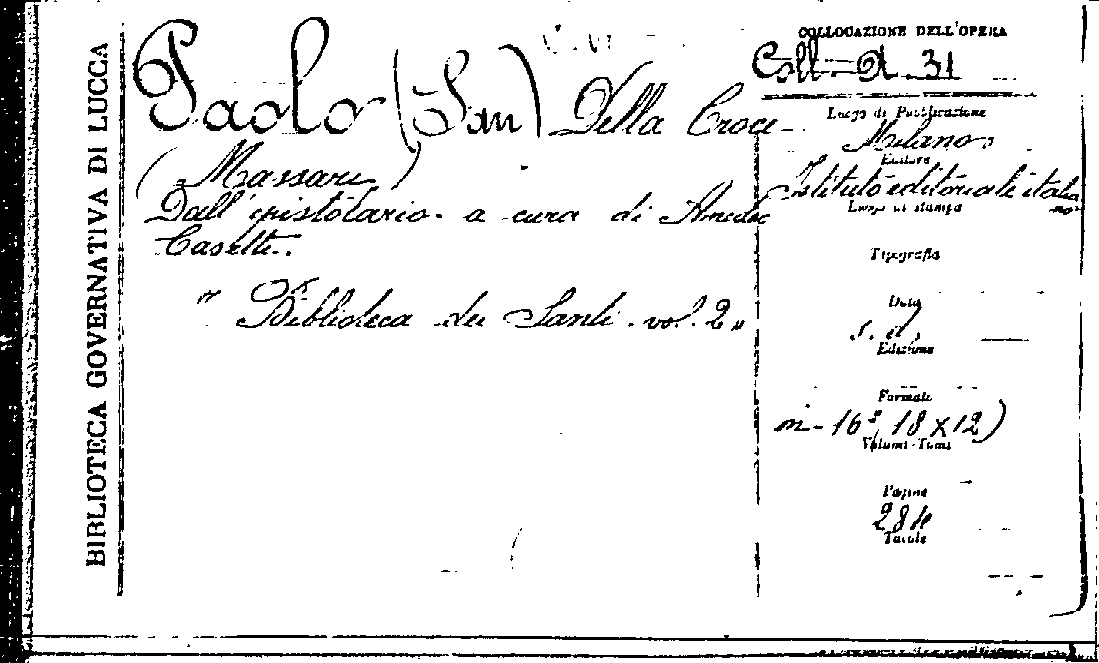 BIBLIOTECA GOVERNATIVA DI LUCCA
Paolo (San) Della Croce
(Massari)
Dall'epistolario - a cura di Amedeo
Casetti.
" Biblioteca dei Santi - vol. 2 "
COLLOCAZIONE DELL'OPERA
Coll. A. 31
Luogo di Pubblicazione
Milano
Editore
Istituto editoriale italiano
Luogo di stampa
Tipografia
Data
s. d.
Edizione
Formato
in-16° 18 x 12)
Volumi-Tomi
Pagine
284
Tavole